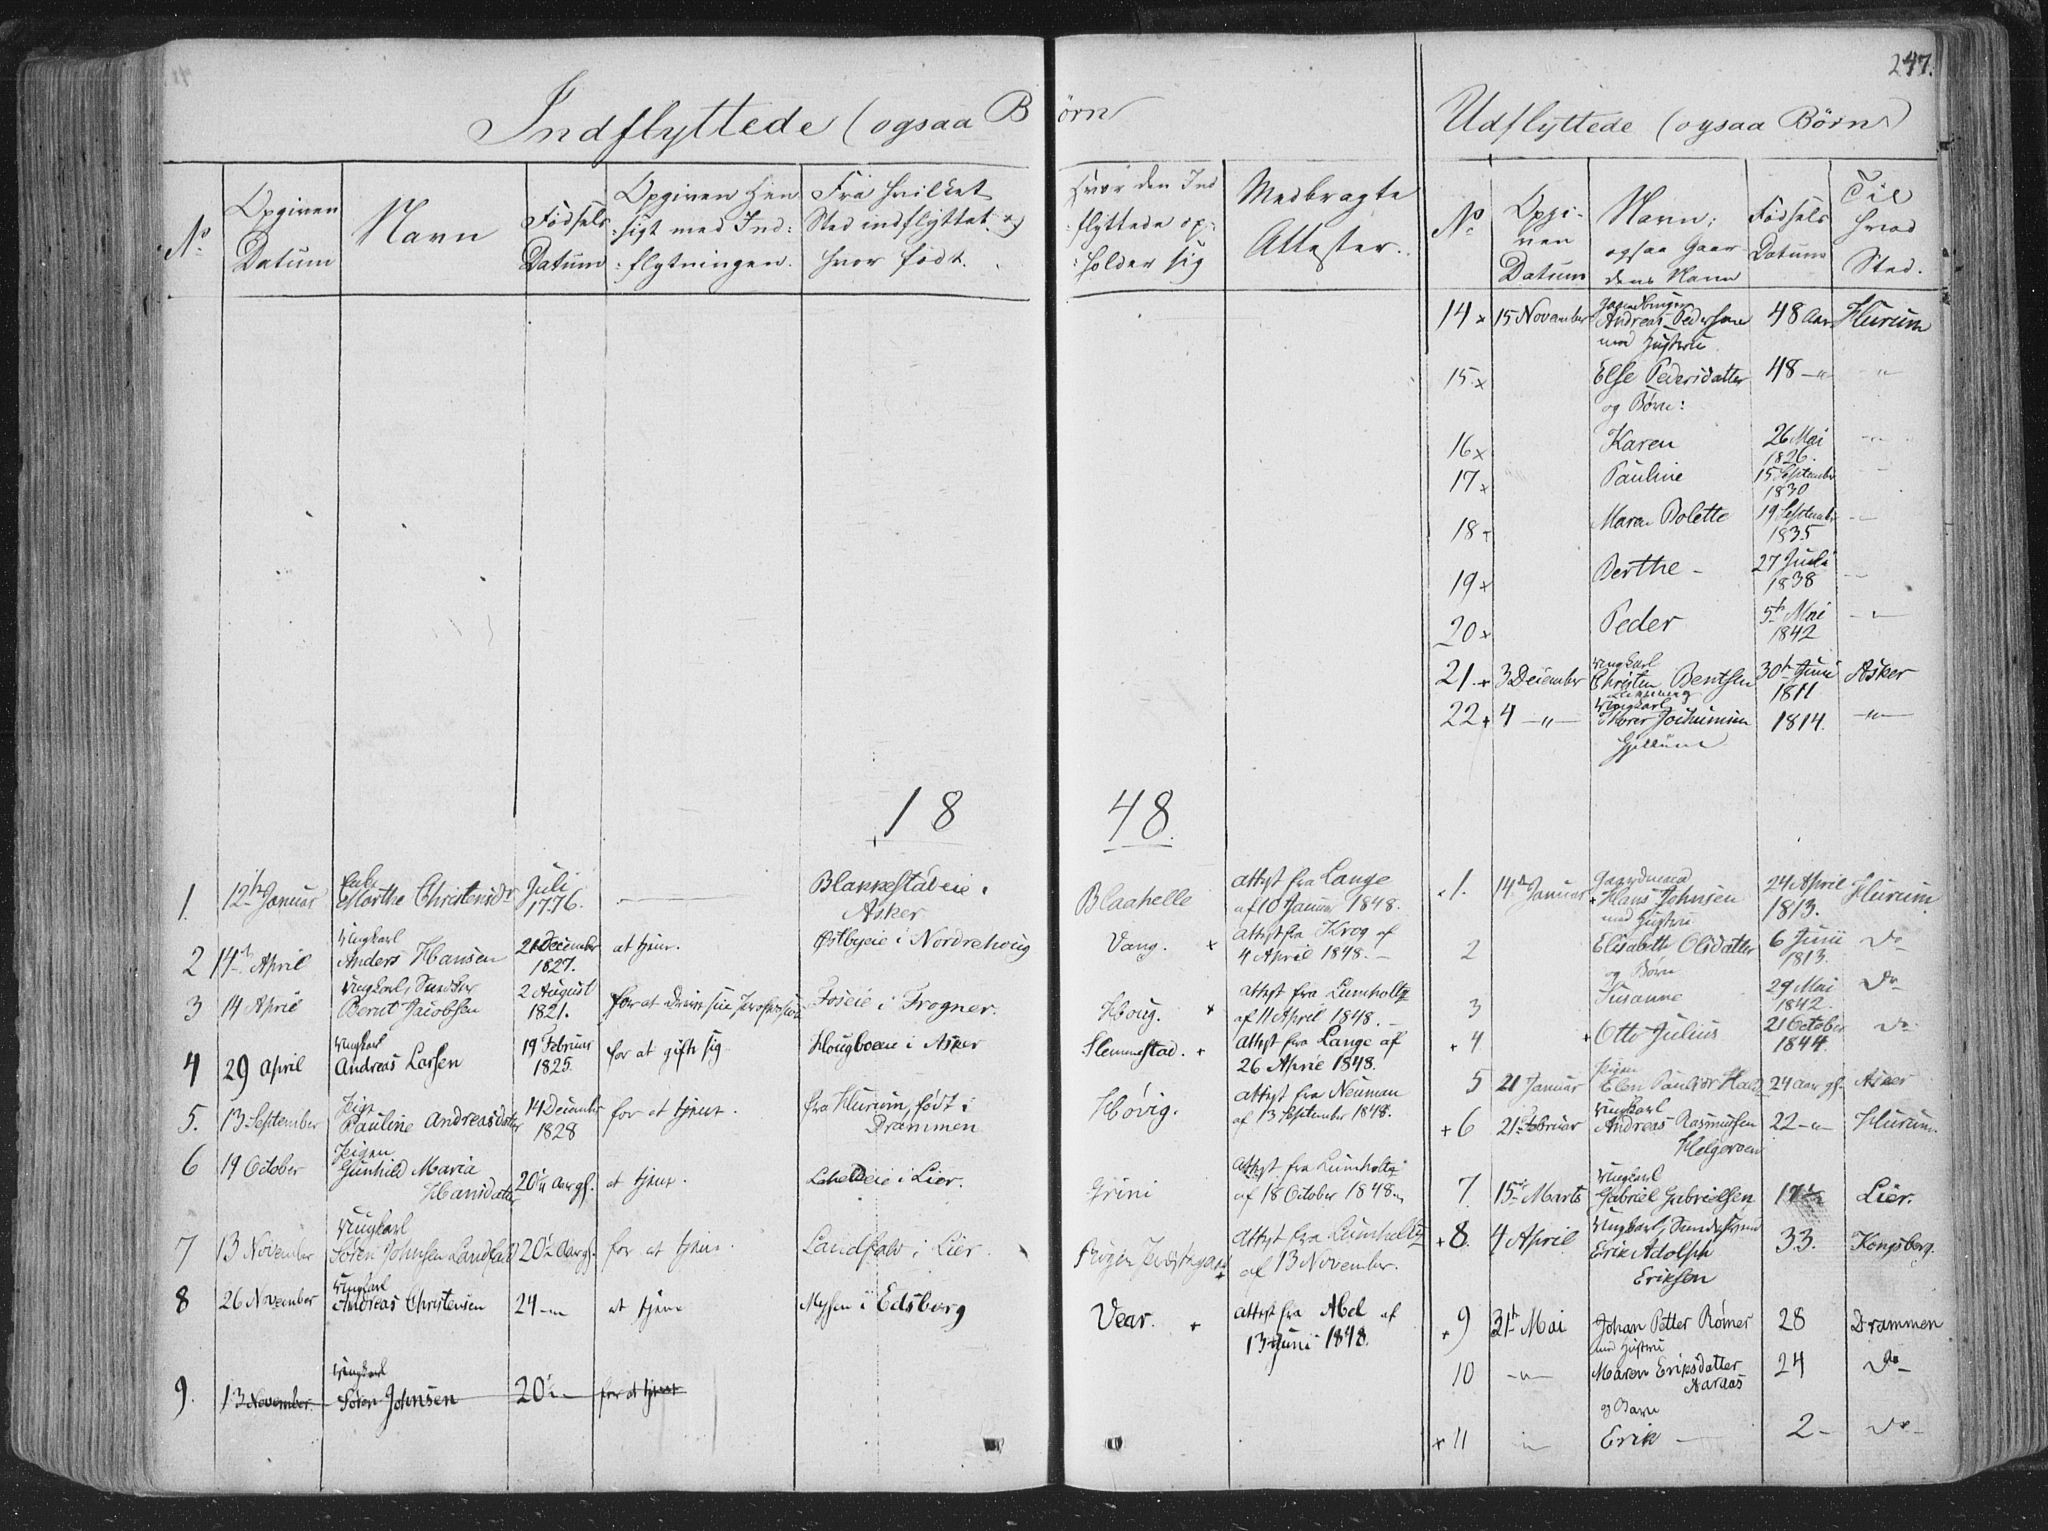 247.
Indflyttede (ogsaa Børn
No
Opgiven Datum
Navn
Fødsels Datum
Opgiven Hensigt med Indflytningen.
Fra hvilket Sted indflyttet og hvor født.
Hvor den Indflyttede opholder sig
Medbragte Attester.
18 48.
1. 12te Januar Marthe Christensdr Juli 1776. — Blakkestadeie i Asker Blaahelle Attest fra Lange af 10 Januar 1848.
2 14de April Ungkarl Anders Hansen 21 December 1827. at tjene. Østbyeie i Nordrehoug Vang. x Attest fra Krog af 4 April 1848. —
3 14 April Ungkarl, Berut Jacobsen 2 August 1821. for at drive sin Profession Foseie i Frogner. Houg. x Attest fra Lumholtz af 11 April 1848. —
4 29 April Ungkarl Andreas Larsen 19 Februar 1825. for at gifte sig Hougboeie i Asker Slemmestad. + Attest fra Lange af 26 April 1848.
5. 13 September Pige Pauline Andreasdatter 14 December 1828 for at tjene. fra Hurum, født i Drammen Høvig. Attest fra Neuman af 13 September 1848.
6 19 October Pigen Gunhild Maria Hansdatter 20½ Aar gl. at tjene. i Lier. Grini Attest fra Lumholtz af 18 October 1848.
7 13 November Ungkarl Søren Johnsen Landfald 20½ Aar gl. for at tjene. Landfald i Lier. Røgen Præstegaard + Attest fra Lumholtz af 13 November.
8 26 November Ungkarl Andreas Christensen 24 — at tjene Mysen i Edsberg Vear. + Attest fra Abel af 13 Juni 1848.
9. 13 November. Ungkarl Søren Johnsen 20½ — for at tjene
Udflyttede (ogsaa Børn)
No
Opgiven Datum
Navn; ogsaa Gaardens Navn
Fødsels Datum
Til hvad Sted.
14 x 15 November Andreas Pedersen med Hustru 48 Aar Hurum
15. x Else Pedersdatter 48 — "
og Børn:
16 x Karen 26 Mai 1826. — "
17 x Pauline 15 September 1830 —
18 + Maren Bolette 19 September 1835 —
19 x Berthe — 27 Juli 1838 —
20 x Peder 5te Mai 1842 — " —
21. + 3 December Ungkarl Christen Bentsen 30te Juni 1811 Asker
22 + 4 — " — Ungkarl Thorer Jochumsen Gjellum 1814. — " —
1. 14de Januar Gaardmand + Hans Johnsen med Hustru 24 April 1813. Hurum
2 Elisabeth Olsdatter 6 Juni 1813. Do
og Børn
3 Susanne 29 Mai 1842. Do
+ 4 + Otto Julius 21 October 1844. Do
5 21 Januar Pigen Elen 24 Aar gl. Asker
+ 6 21 Februar Ungkarl Andreas Rasmussen Helgeroen 22 — " — Hurum.
7 15de Marts Ungkarl Gabriel Gabrielsen 17½ Lier.
+ 8. 4 April Ungkarl, Erik Adolph Eriksen 33. Kongsberg.
+ 9 31te Mai Johan Petter Rømer 28 Drammen
med Hustru
10 — " — Maren Eriksdatter Aaraas 24 Do
og Barn
x 11 — " — Erik — 2 — Do